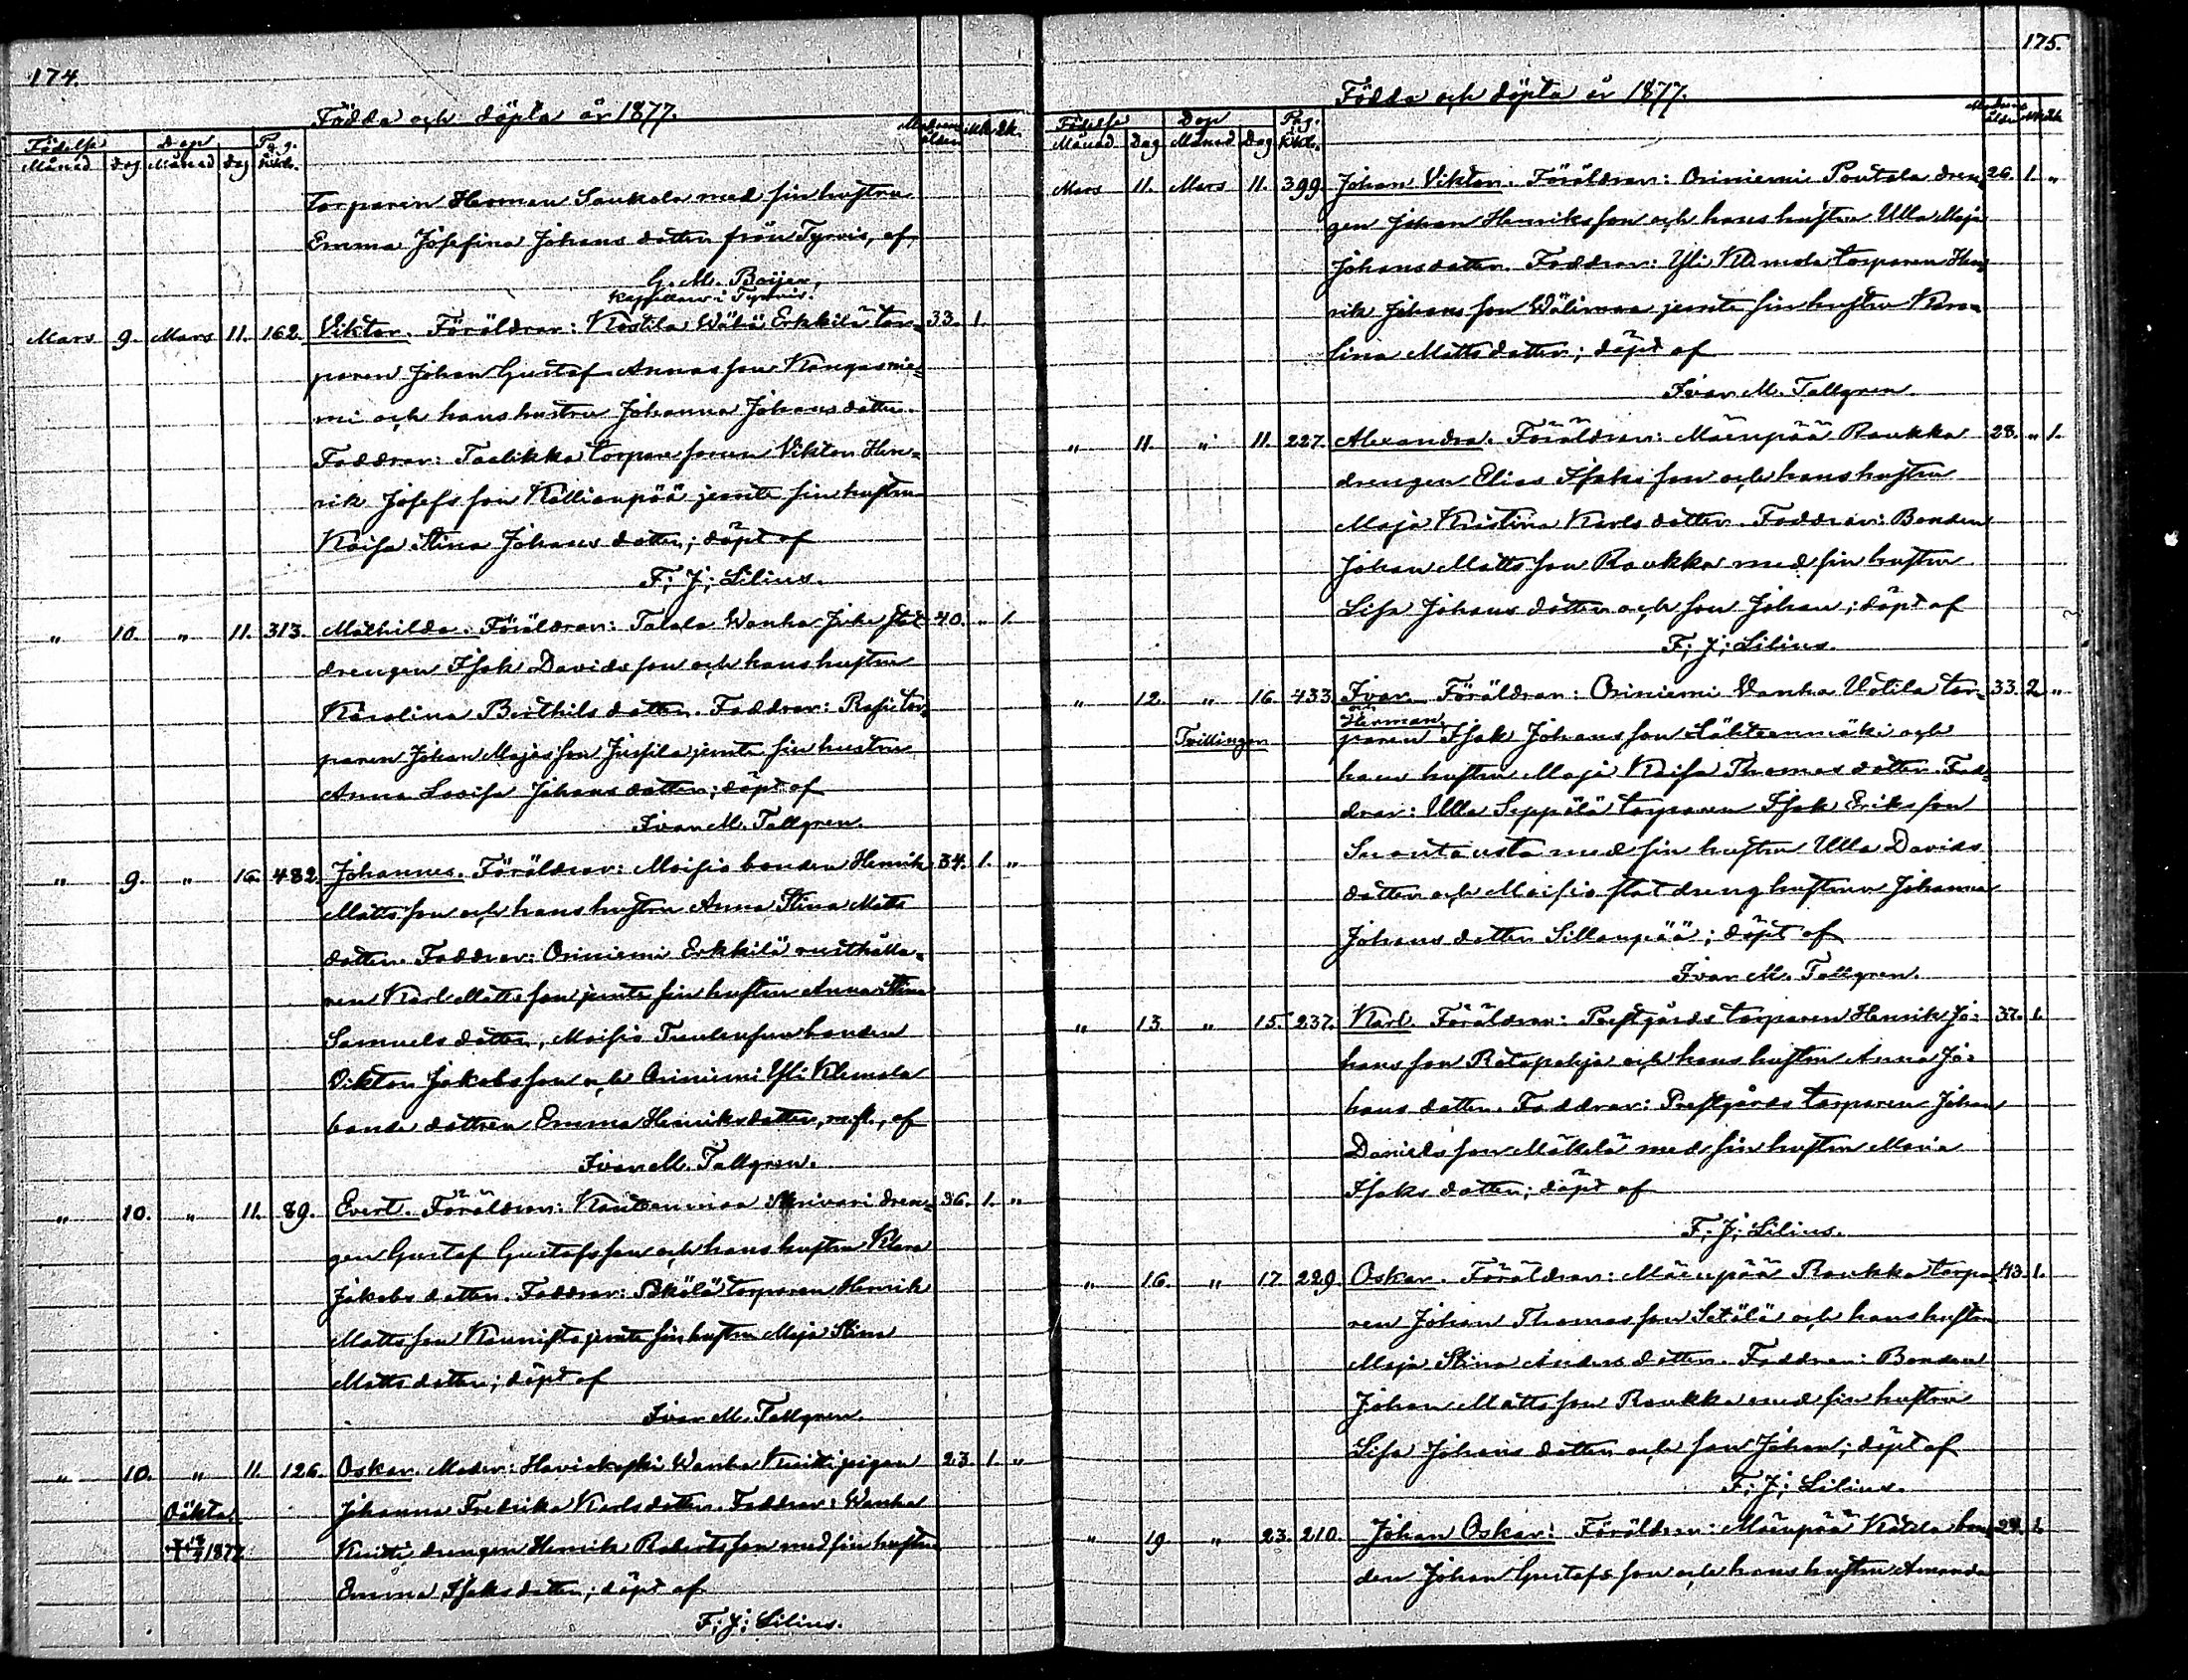 174.
Födda och döpta år 1877.
Födelse Dop Pag. i Kkb. Moderns ålder Mk. Qk.
Månad Dag Månad Dag
torparen Herman Saukola med sin hustru
Emma Josefina Johansdotter från Tyrvis, af
G. M. Boijer,
kapellan i Tyrvis.
Mars 9. Mars 11. 162. Viktor. Föräldrar: Kostila Wähä Erkkilä tor- 33. 1.
paren Johan Gustaf Annasson Kangasnie-
mi och hans hustru Johanna Johansdotter.
Faddrar: Taalikka torparesonen Viktor Hen-
rik Josefsson Kallianpää jemte sin hustru
Kaisa Stina Johansdotter; döpt af
F. J. Lilius.
" 10. " 11. 313. Mathilda. Föräldrar: Talala Wanha stat 40. " 1.
drengen Isak Davidsson och hans hustru
Karolina Berthilsdotter. Faddrar: tor-
paren Johan Majasson Jussila jemte sin hustru
Anna Lovisa Johansdotter; döpt af
Ivar M. Tallgren.
" 9. " 16. 482. Johannes. Föräldrar: Moisio bonden Henrik 34. 1. "
Mattsson och hans hustru Anna Stina Matts
dotter. Faddrar: Oriniemi Erkkilä rusthålla-
ren Karl Mattsson jemte sin hustru Anna Stina
Samuelsdotter, Moisio bonden
Viktor Jakobsson och Oriniemi Yli Klemola
bonde dottren Emma Henriksdotter, af
Ivar M. Tallgren.
" 10. " 11. 89. Evert. Föräldrar: Kautenmaa Skrivari dren- 36. 1. "
gen Gustaf Gustafsson och hans hustru Klara
Jakobsdotter. Faddrar: torparen Henrik
Mattsson Kaunisto jemte sin hustru Maja Stina
Mattsdotter; döpt af
Ivar M. Tallgren.
" 10. " 11. 126. Oskar. Moder: Haviokoski Wanha Knuuti pigan 23. 1. "
Oäkta Johanna Fredrika Karlsdotter. Faddrar: Wanha
1877 Knuuti drengen Henrik Robertsson med sin hustru
Emma Isaksdotter; döpt af
F. J. Lilius.
175.
Födda och döpta år 1877.
Födelse Dop Pag. i Kkb. Moderns ålder Mk. Qk.
Månad Dag Månad Dag
Mars 11. Mars 11. 399. Johan Viktor. Föräldrar: Oriniemi Poutala dren- 26. 1. "
gen Johan Henriksson och hans hustru Ulla Maja
Johansdotter. Faddrar: Yli Klemola torparen Hen-
rik Johansson Wälimaa jemte sin hustru Karo-
lina Mattsdotter; döpt af
Ivar M. Tallgren.
" 11. " 11. 227. Alexandra. Föräldrar: Mäenpää Raukka 28. " 1.
drengen Elias Isaksson och hans hustru
Maja Kristina Karlsdotter. Faddrar: Bonden
Johan Mattsson Raukka med sin hustru
Lisa Johansdotter och son Johan; döpt af
F. J. Lilius.
" 12. " 16. 433. Ivar Föräldrar: Oriniemi Wanha Uotila tor- 33. 2. "
och Herman
Tvillingar paren Isak Johansson Lähteenmäki och
hans hustru Maja Kaisa Thomasdotter. Fad-
drar: Ulla Seppälä torparen Isak Eriksson
Suontausta med sin hustru Ulla Davids
dotter och Moisio statdrenghustrun Johanna
Johansdotter Sillanpää; döpt af
Ivar M. Tallgren.
" 13. " 15. 237. Karl. Föräldrar: Prestgårds torparen Henrik Jo- 37. 1.
hansson Ratapohja och hans hustru Anna Jo-
hansdotter. Faddrar: Prestgårds torparen Johan
Danielsson Mäkelä med sin hustru Maria
Isaksdotter; döpt af
F. J. Lilius.
" 16. " 17. 229. Oskar. Föräldrar: Mäenpää Raukka torpa- 43. 1.
ren Johan Thomasson Setälä och hans hustru
Maja Stina Andersdotter. Faddrar: Bonden
Johan Mattsson Raukka med sin hustru
Lisa Johansdotter och son Johan; döpt af
F. J. Lilius.
" 19. " 23. 210. Johan Oskar. Föräldrar: Mäenpää bon- 24. 1.
den Johan Gustafsson och hans hustru Amanda